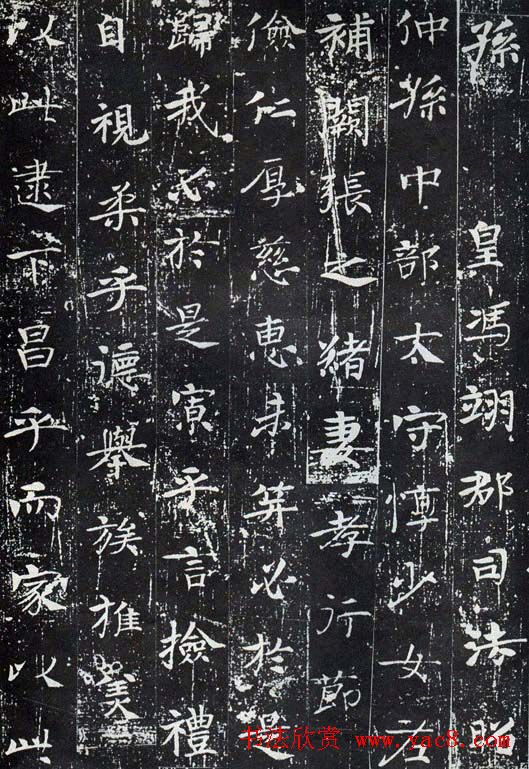 孫 皇馮翊郡司法
仲孫中部太守慱少女
補闕張之緒妻孝行節
儉仁厚慈惠未筭必於是
歸我必於是寅乎言撿禮
自視柔乎德舉族推美
以此逮下昌乎而家以此
书法欣赏 www.yac8.com